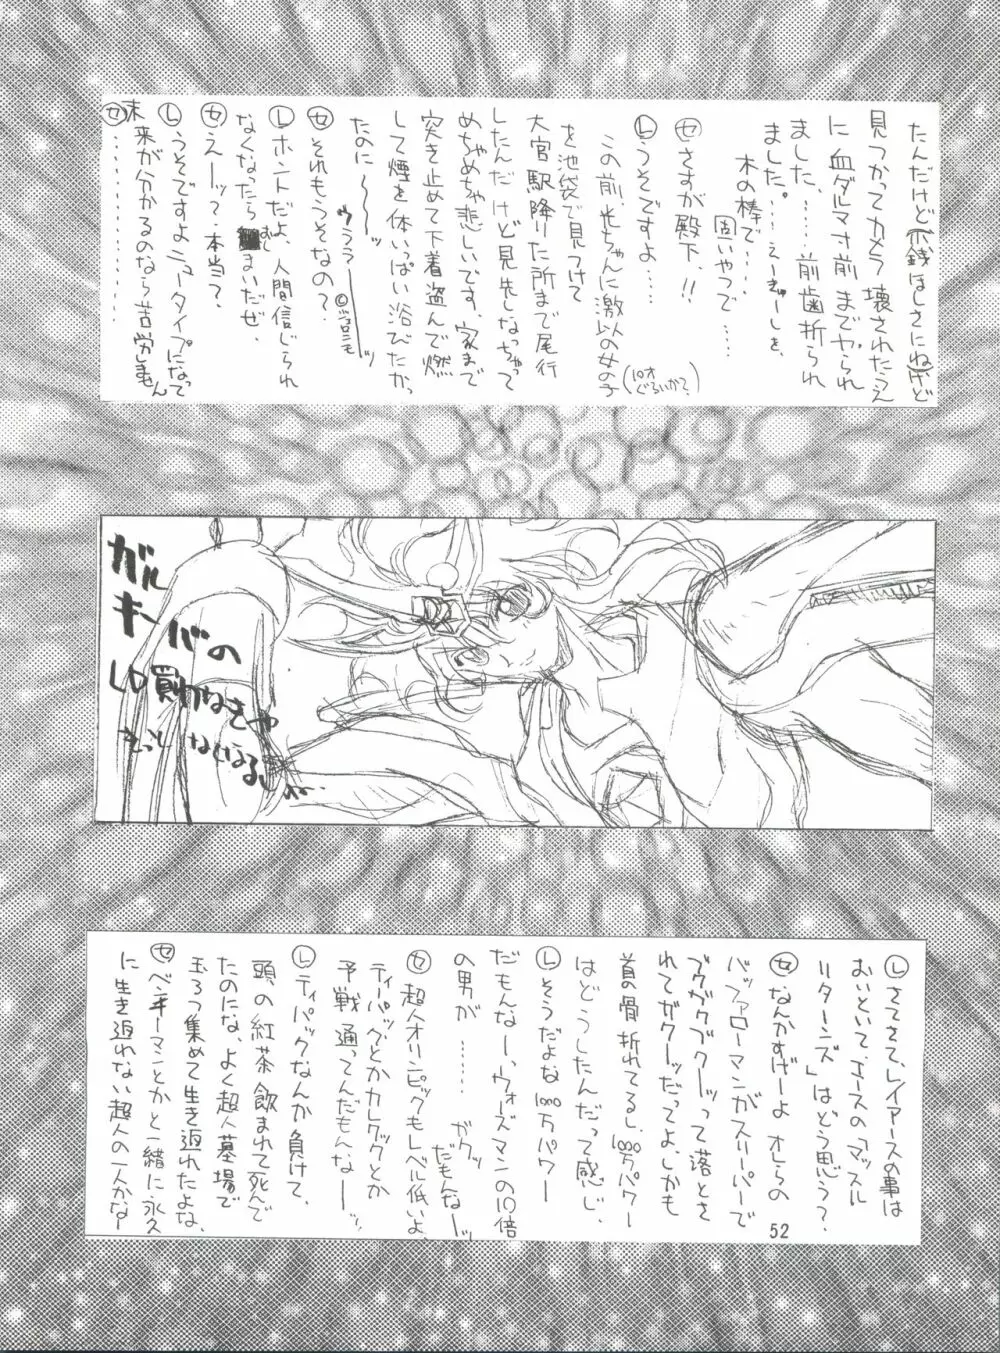 たんだけど(小銭ほしさにね)けど
見つかってカメラ壊されたうえ
に血ダルマ寸前までヤられ
ました、……前歯折られ
ました。…えーぎゅーしを、
木の棒で…
固いやつで……
セ さすが殿下、!!
L うそですよ…
この前、光ちゃんに激似の女の子
(10才ぐらいかな?)
を池袋で見つけて
大宮駅降りた所まで尾行
したんだけど見失しなっちゃって
めちゃめちゃ悲しいです、家まで
突き止めて下着盗んで燃
して煙を体いっぱい浴びたかっ
たのに〜〜〜ッ
ウララーーーッ
セ それもうそなの?
L ホントだよ、人間信じられ
なくなったらおしまいだぜ、
セ えーーッ?本当?、
L うそですよニュータイプになって
未来が分かるのなら苦労しません
セ …………
ガルキーバの
LD買わなきゃ
きっとなくなるし…
L さてさて、レイアースの事は
おいといて、エースの「マッスル
リターンズ」はどう思う?、
セ なんかすげーよ オレらの
バッファローマンがスリーパーで
ブクブクブクーッって落とさ
れてガクーッだってよ、しかも
首の骨折れてるし、1000万パワー
はどうしたんだって感じ、
L そうだよな1000万パワー
だもんなー、ウォーズマンの10倍
の男が……ガクッ
だもんなーッ
セ 超人オリンピックもレベル低いよ、
ティパックとかカレクックとか
予戦通ってんだもんなーーッ
L ティパックなんか負けて、
頭の紅茶飲まれて死んで
たのにな、よく超人墓場で
玉ろつ集めて生き返れたよな、
セ ベンキーマンとかと一緒に永久
に生き返れない超人の一人かな〜
52